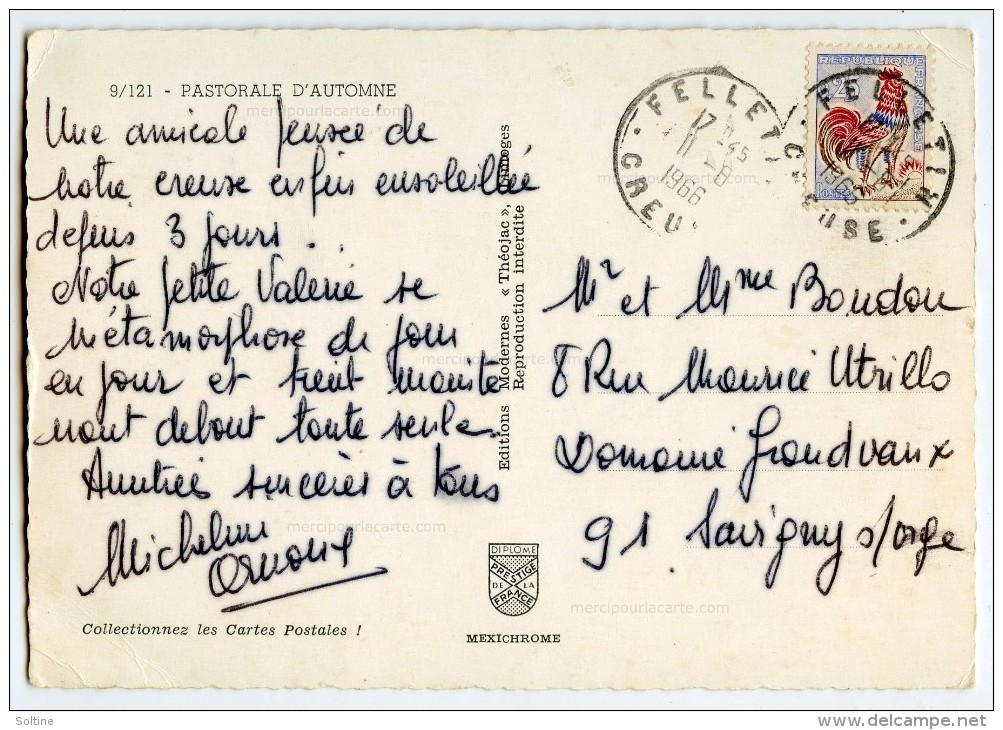 9/121 - PASTORALE D'AUTOMNE
Une amicale pensée de
notre creuse enfin ensoleillée
depuis 3 jours.
Notre petite Valérie se
métamorphose de jour
en jour et tient mainte
nant debout toute seule.
Amitiés sincères à tous
Micheline
Collectionnez les Cartes Postales !
Editions Modernes « Théojac », Limoges
Reproduction interdite
DIPLOME
PRESTIGE
DE LA
FRANCE
MEXICHROME
FELLETIN
17 H 45
1966
CREUSE
REPUBLIQUE FRANÇAISE
0,25
POSTES
FELLETIN
1966
CREUSE
Mr et Mme Boudou
8 Rue Maurice Utrillo
Domaine Grandvaux
91 Savigny s/orge
mercipourlacarte.com
mercipourlacarte.com
mercipourlacarte.com
mercipourlacarte.com
mercipourlacarte.com
Soltine
www.delcampe.net